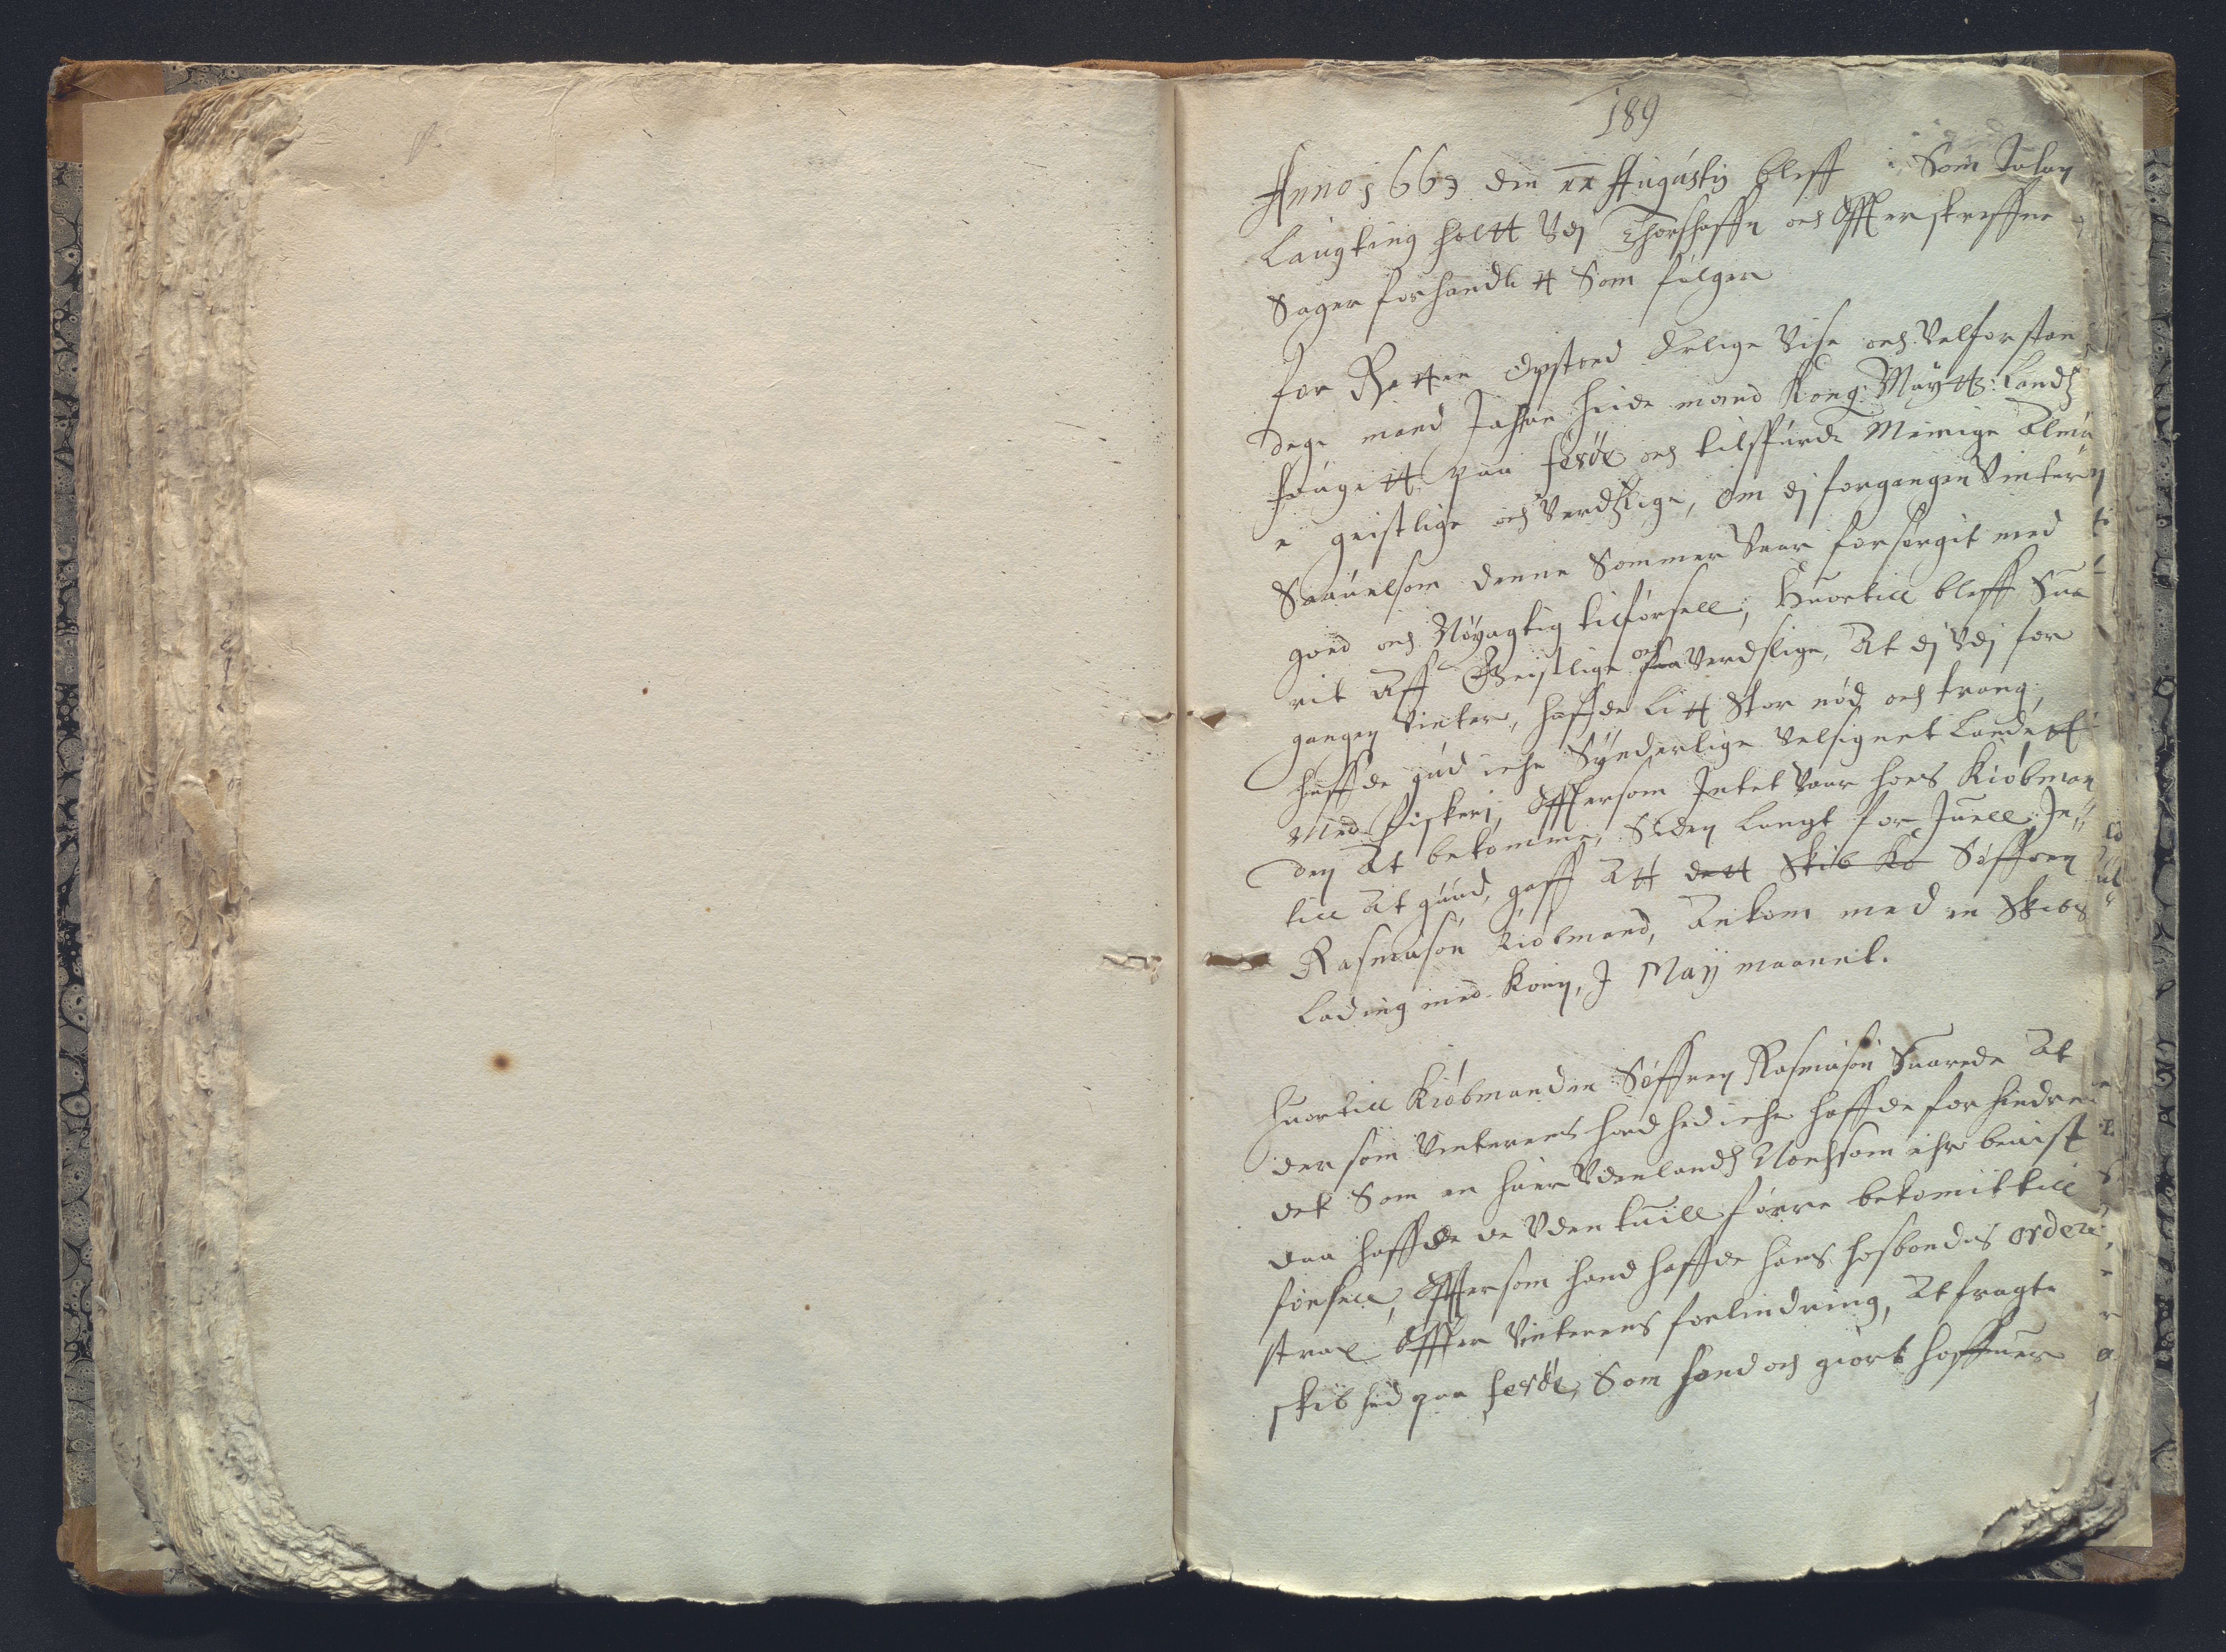 189
Anno 1667 den 22 Augustij bleff Som
Laugting holtt Vdj Thorshaffn och Effterskreffne
Sager forhandlitt Som følger
For Retten Opstoed Erlige Vise och Velforstan
dege mand Johan Heidemand Kong: Maytt: Landtz
fougett paa færøe och tilspurde Menige Almu
e geistlige och Verdtzlige, om dj forgangen Vinter
Saauelsom denne Sommer Vaar forsørgit med
goed och Nøyagtig tilførsell, Huortill bleff Sua
rit Aff Geistlige och Verdslige, At dj Vdj for
gangen Vinter, haffde litt Stor nød och trang,
haffde gud iche Synderlige Velsignet Landett
Med fiskerj, Effttersom Intet Vaar hoes Kiøbman
den At bekomme, Siden langt for Juell, In
till At guud, gaff Att dett Skib ko Søffren
Rasmusøn Kiøbmand, Ankom med en Skibs
Lading med Korn, J Maij maanet.
Huortill Kiøbmanden Søffren Rasmusøn Suarede At
der som Vinterens hardhed iche haffde forhindre
det Som en huer Vdenlandz Nochsom ehr beuist
daa haffde de Vden tuill førre bekomit till
førsell, Efftersom hand haffde hans hosbondis order
strax Effter Vinterens forlindring, At fragte
skib hid paa færøe, Som hand och giort haffuer